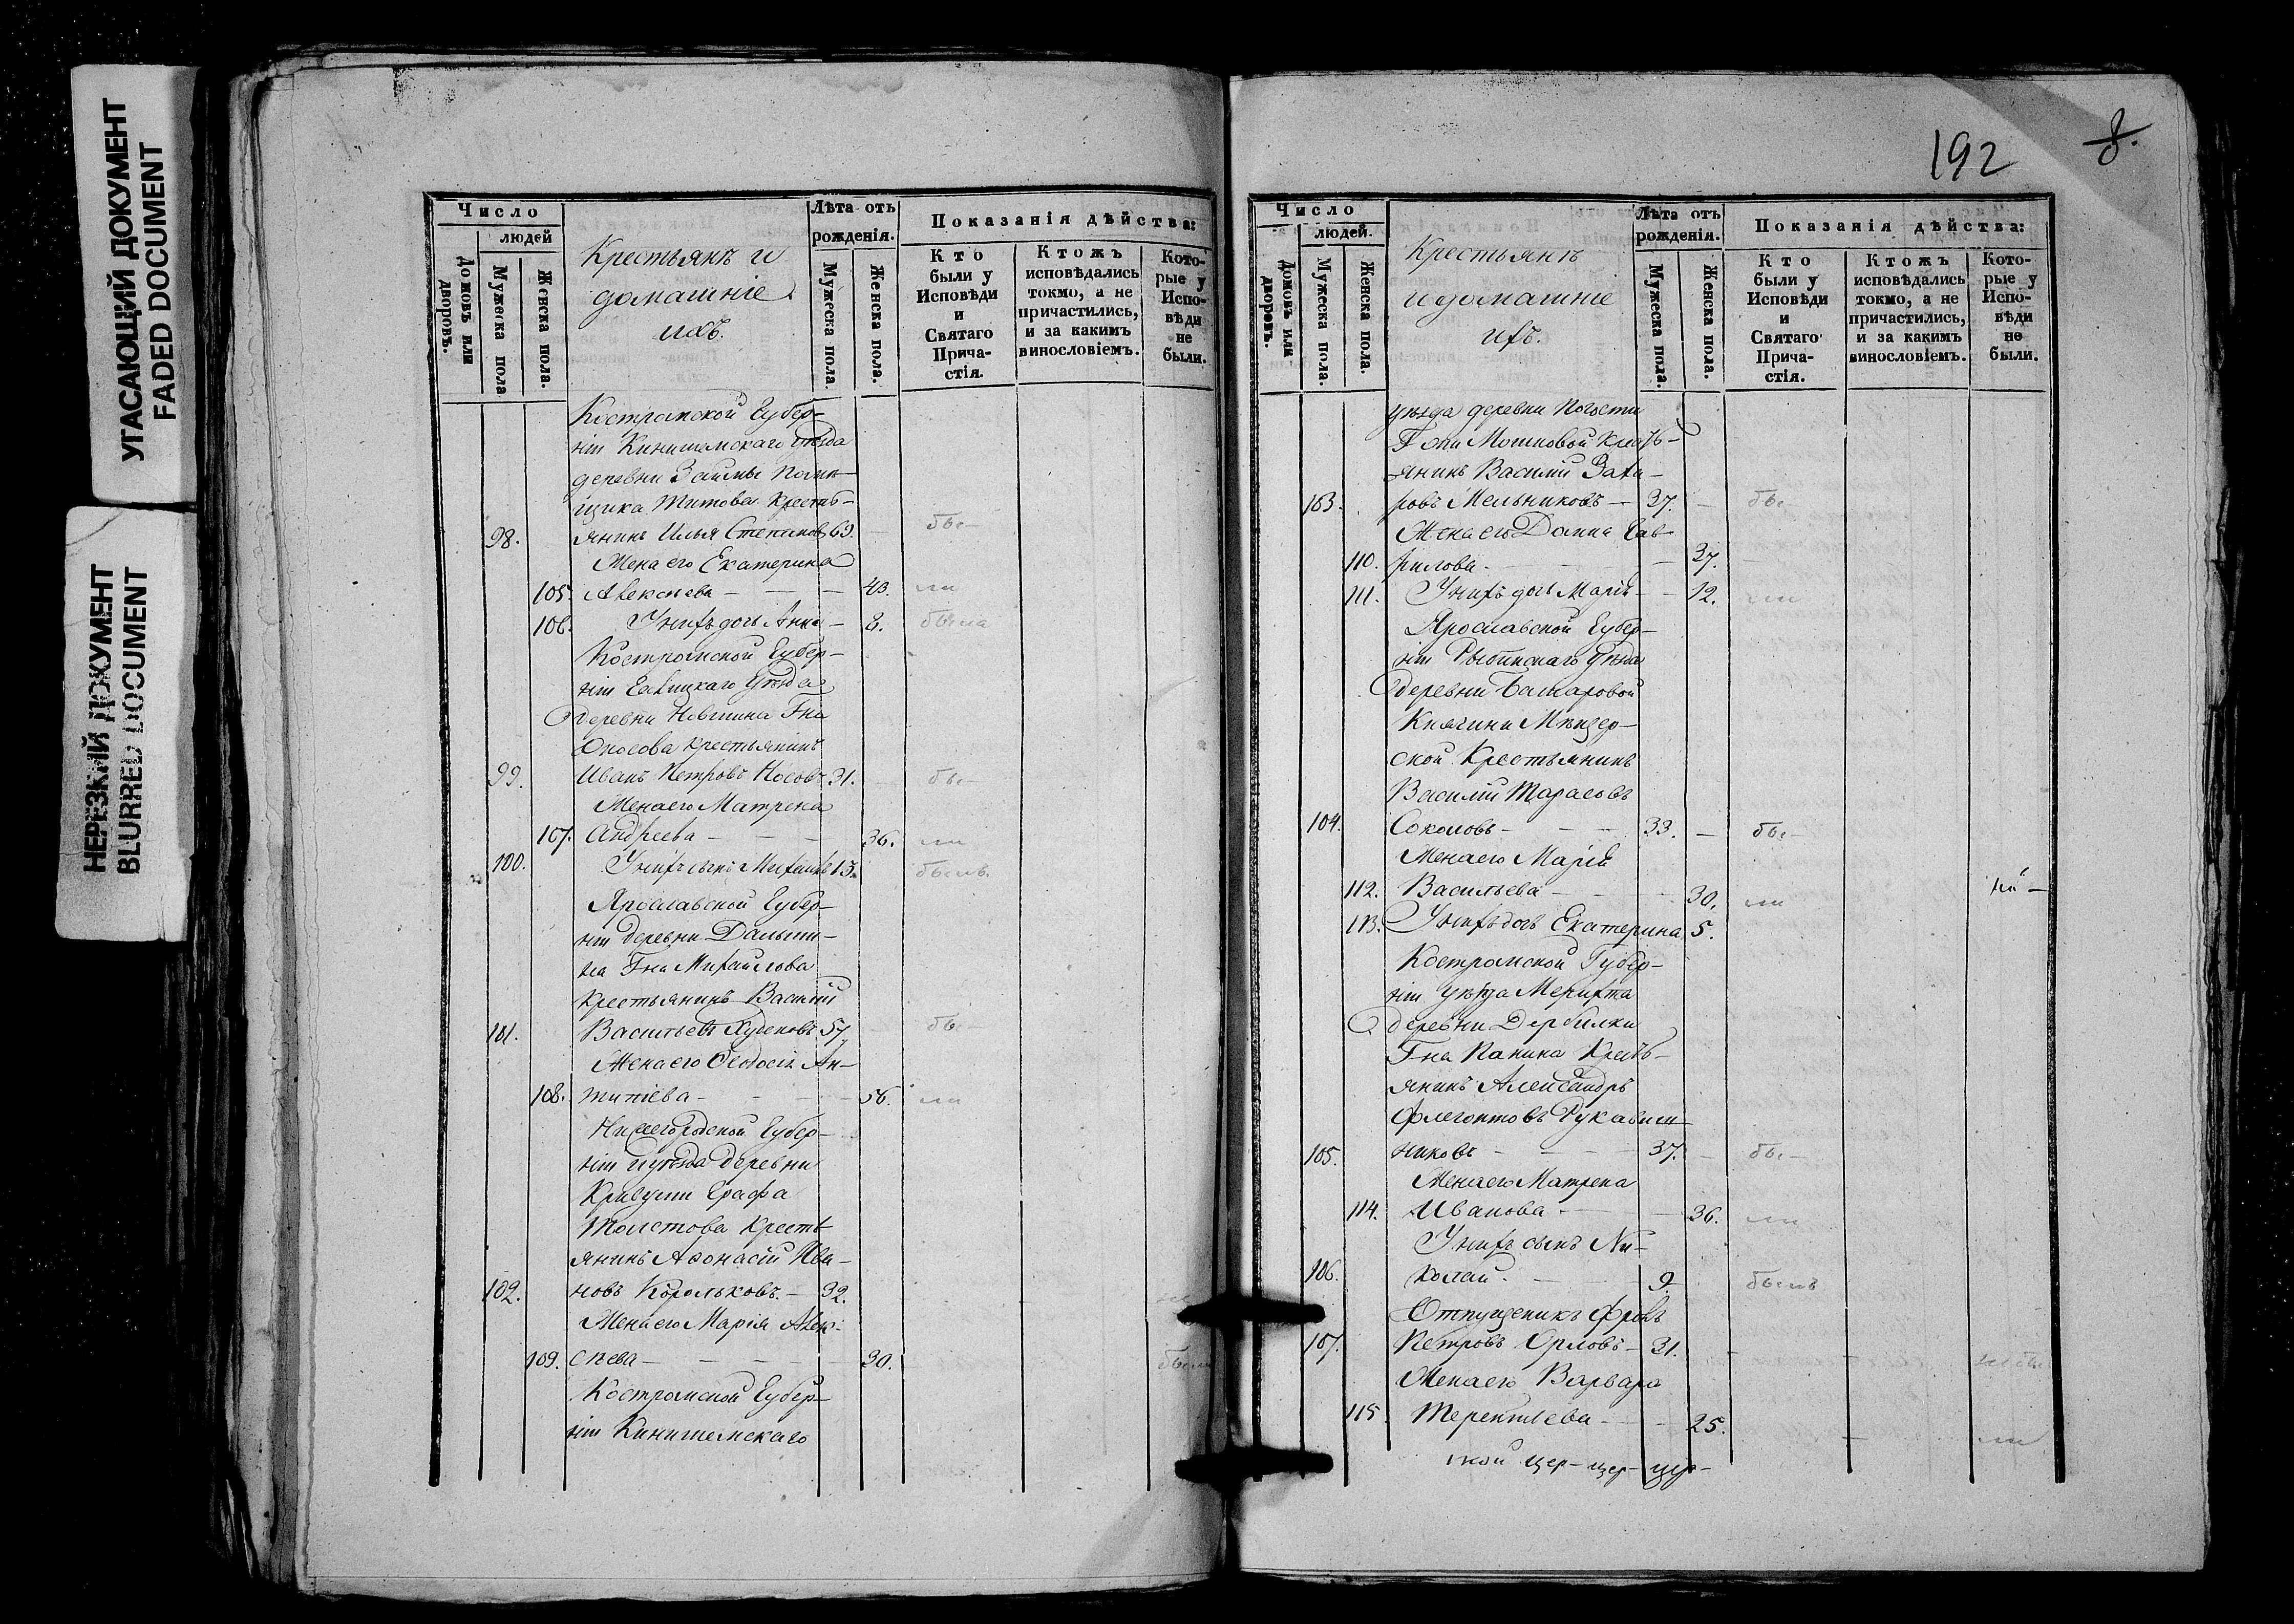 УГАСАЮЩИЙ ДОКУМЕНТ
FADED DOCUMENT
НЕРЕЗКИЙ ДОКУМЕНТ
BLURRED DOCUMENT
Число
людей
Домовъ или дворовъ.
Мужеска пола
Женска пола.
Крестьянъ и
домашніе
ихъ.
Лѣта отъ
рожденія.
Мужеска пола
Женска пола.
Показанія дѣйства:
Кто
были у
Исповѣди
и
Святаго
Прича-
стія.
Ктожъ
исповѣдались
токмо, а не
причастились,
и за какимъ
винословіемъ.
Кото-
рые у
Испо-
вѣди
не
были.
Костромской Губер-
ніи Кинишемскаго уѣзда
деревни Заимы помѣ-
щика Титова крестъ-
98. янинъ Илья Степановъ 69. — бы-
Жена его Екатерина
105. Алексѣева — — — 43. ли
106. У нихъ дочь Анна — 8. была
Костромской Губер-
ніи Галицкаго Уѣзда
деревни Г-на
крестьянинъ
99. Иванъ Петровъ Носовъ 31. — бы-
Жена его Матрена
107. Андреева — — — 36. ли
100. У нихъ сынъ Михаилъ 13. былъ
Ярославской Губер-
ніи деревни
на Г-на Михайлова
крестьянинъ Василій
101. Васильевъ 57. бы-
Жена его Ѳеодосія Ан-
108. типіева — — — 56. ли
Нижегородской Губер-
ніи и уѣзда деревни
Кривуши Графа
Толстова Кресть-
янинъ Аѳонасій Ива-
102. новъ Корольковъ. — 32.
Жена его Марія Алек-
109. сѣева — — — — 30. были
Костромской Губер-
ніи Кинишемскаго
192 8.
Число
людей.
Домовъ или дворовъ.
Мужеска пола.
Женска пола.
Крестьянъ
и домашніе
ихъ.
Лѣта отъ
рожденія.
Мужеска пола.
Женска пола.
Показанія дѣйства:
Кто
были у
Исповѣди
и
Святаго
Прича-
стія.
Ктожъ
исповѣдались
токмо, а не
причастились,
и за какимъ
винословіемъ.
Кото-
рые у
Испо-
вѣди
не
были.
уѣзда деревни
Г-жи Мошковой Кресть-
янинъ Василій Заха-
103. ровъ Мельниковъ — 37. — бы-
Жена его Домна Гав-
110. рилова — — 37.
111. У нихъ дочь Марія — 12. ли
Ярославской Губер-
ніи Рыбинскаго Уѣзда
деревни
Княгини Мещер-
ской Крестьянинъ
Василій Тарасовъ
104. Соколовъ — — — 33. — бы-
Жена его Марія
112. Васильева — — 30. ли
113. У нихъ дочь Екатерина 5.
Костромской Губер-
ніи уѣзда Мерихта
деревни Дербилки
Г-на Панина Кресть-
янинъ Александръ
Флегонтовъ Рукавиш-
105. никовъ — — — 37. — бы-
Жена его Матрена
114. Иванова — — 36. ли
У нихъ сынъ Ни-
106. колай. — — 9. былъ
Отпущеникъ Фролъ
107. Петровъ Орловъ — 31. — не бы-
Жена его Варвара
115. Терентьева — — 25. — ли